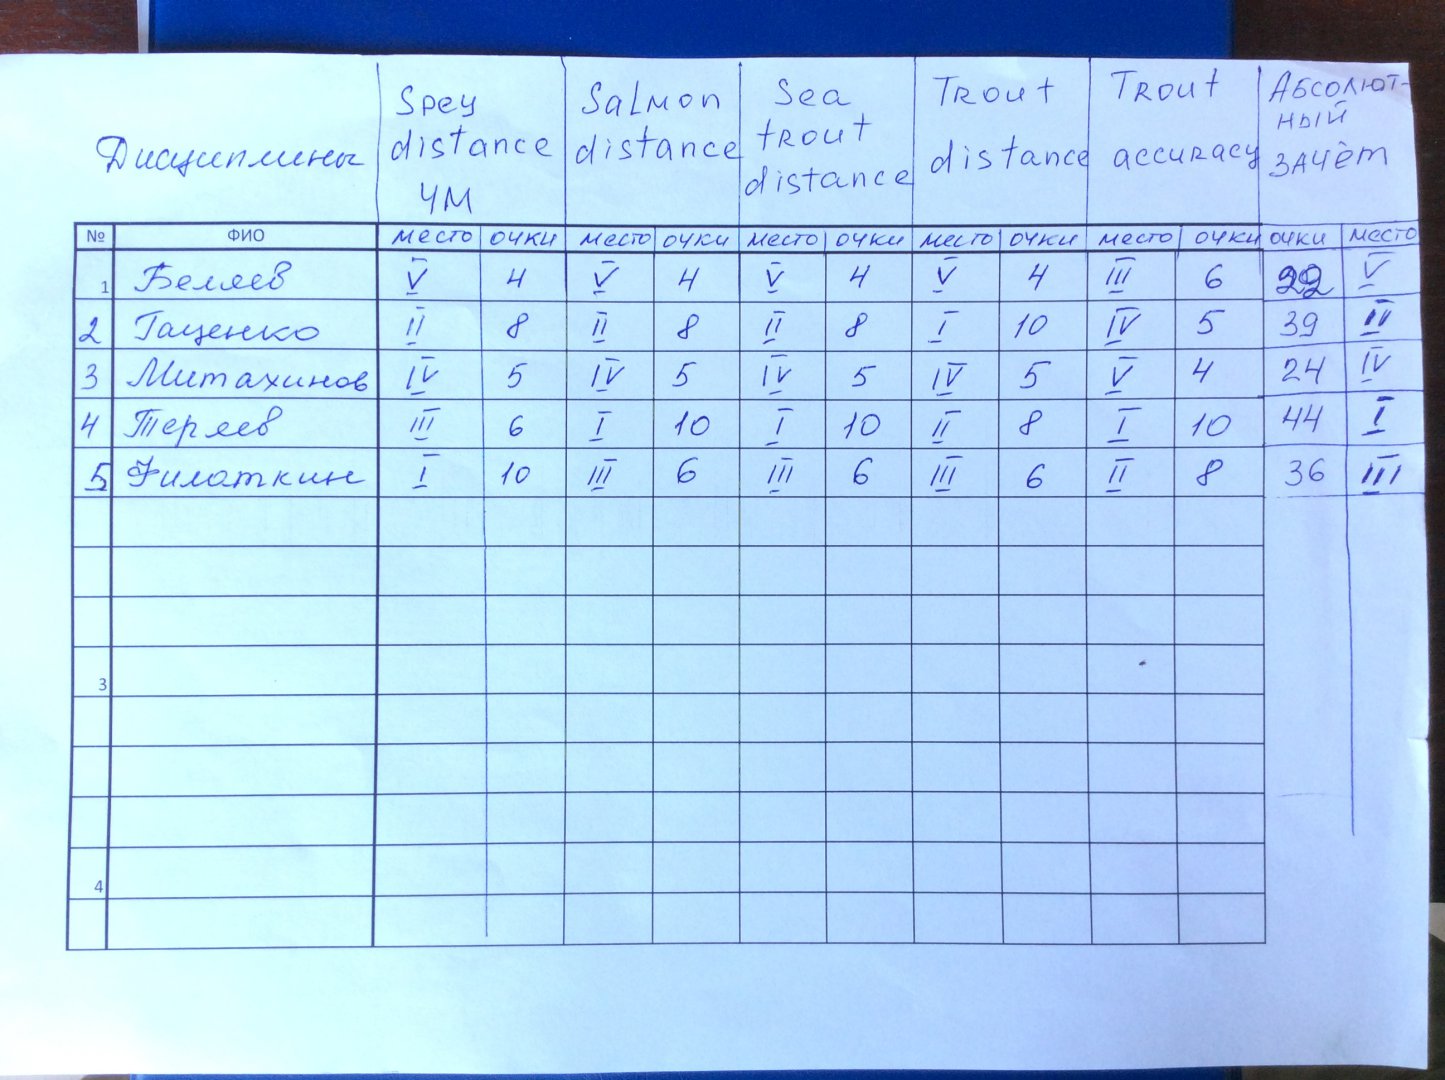 Дисциплины Spey distance ЧМ Salmon distance Sea trout distance Trout distance Trout accuracy Абсолютный зачёт
№ ФИО место очки место очки место очки место очки место очки очки место
1 Беляев V 4 V 4 V 4 V 4 III 6 22 V
2 Гаценко II 8 II 8 II 8 I 10 IV 5 39 II
3 Митахинов IV 5 IV 5 IV 5 IV 5 V 4 24 IV
4 Теряев III 6 I 10 I 10 II 8 I 10 44 I
5 Филаткин I 10 III 6 III 6 III 6 II 8 36 III
3
4